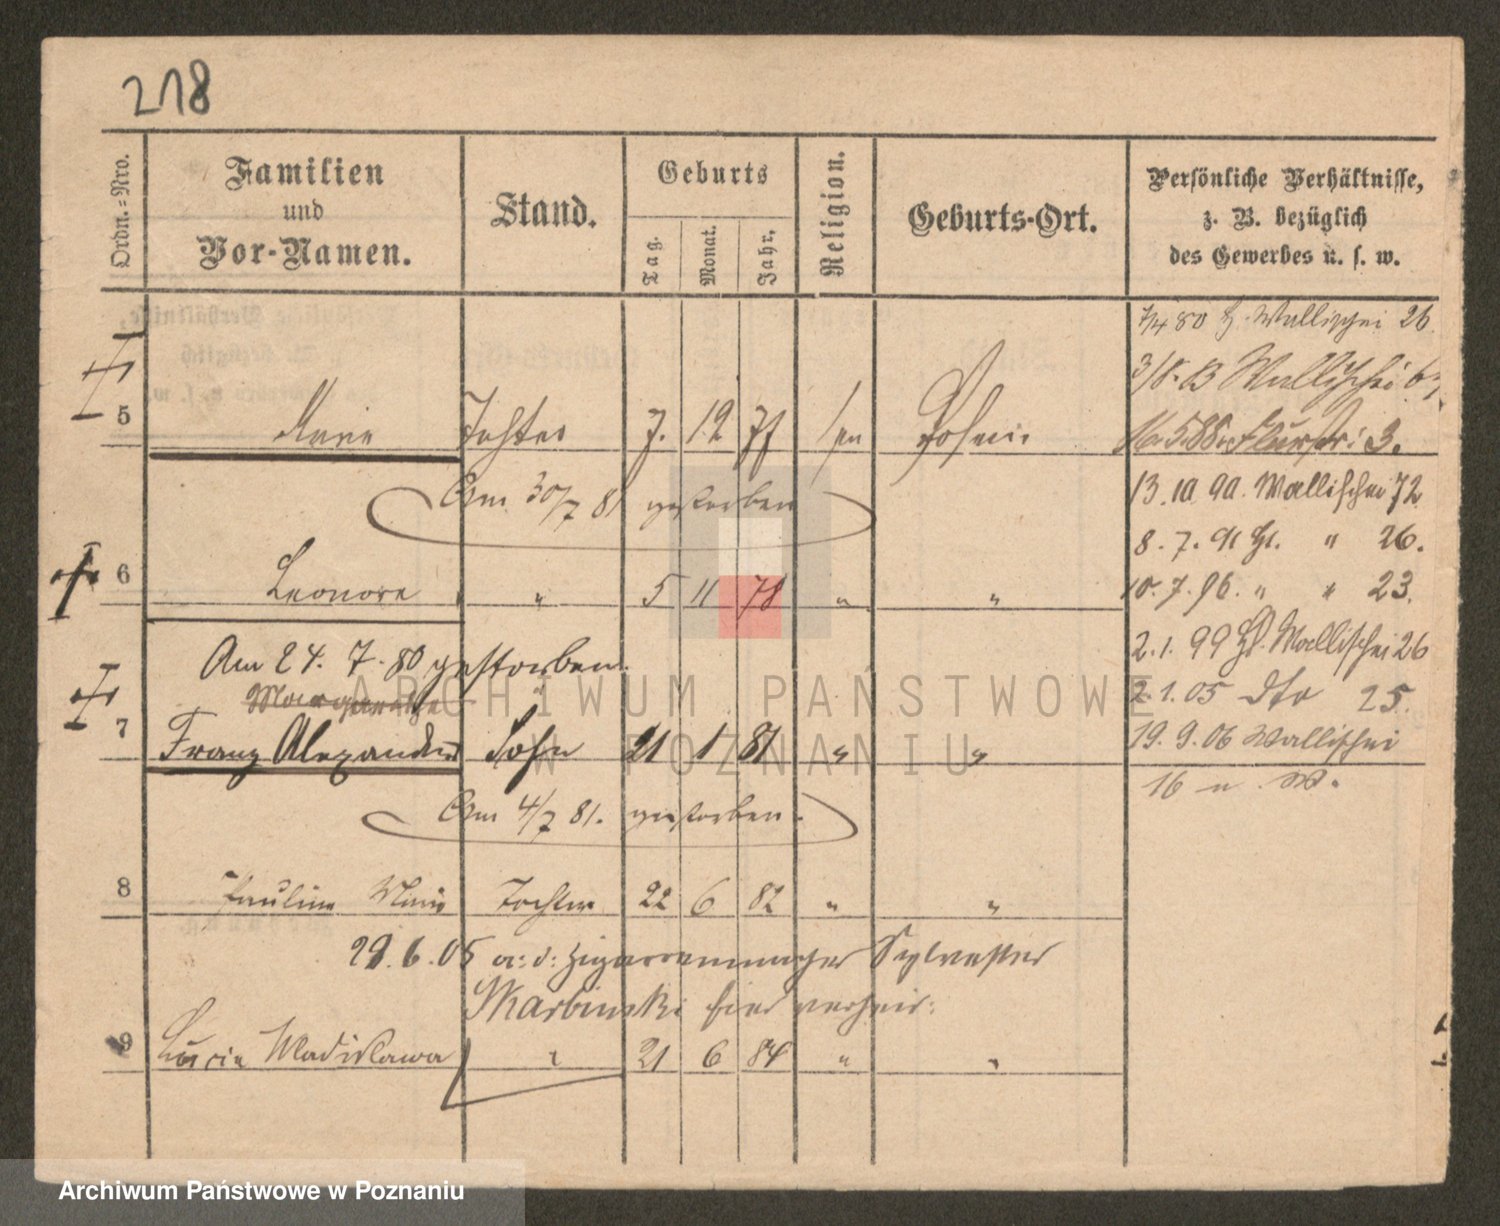 218
Ordn.=Nro.
Familien
und
Vor-Namen.
Stand.
Geburts
Tag.
Monat.
Jahr.
Religion.
Geburts-Ort.
Persönliche Verhältnisse,
z. B. bezüglich
des Gewerbes u. s. w.
7/4 80 H. Wallischei 26
3/8. 83 Wallischei
5 Marie Tochter 7. 12 77 Posen
16. 5. 88. 3.
Am 30/7 81 gestorben
13. 10. 90. Wallischei 72
8. 7. 91 H. " 26.
6 Leonore " 5 11 78 " "
10. 7. 96. " " 23.
Am 24. 7. 80 gestorben.
2. 1. 99 Wallischei 26
Margarethe
2. 1. 05 dto 25.
7 Franz Alexander Sohn 21 1 81 " "
19. 9. 06 Wallischei
16 n. W.
Am 4/7 81. gestorben.
8 Pauline Marie Tochter 22 6 82 " "
29. 6. 05 a. d. Zigarrenmacher Sylvester
Skarbinski hier verheir.
9 Lucia Wladislawa " 21 6 84 " "
ARCHIWUM PAŃSTWOWE
W POZNANIU
Archiwum Państwowe w Poznaniu